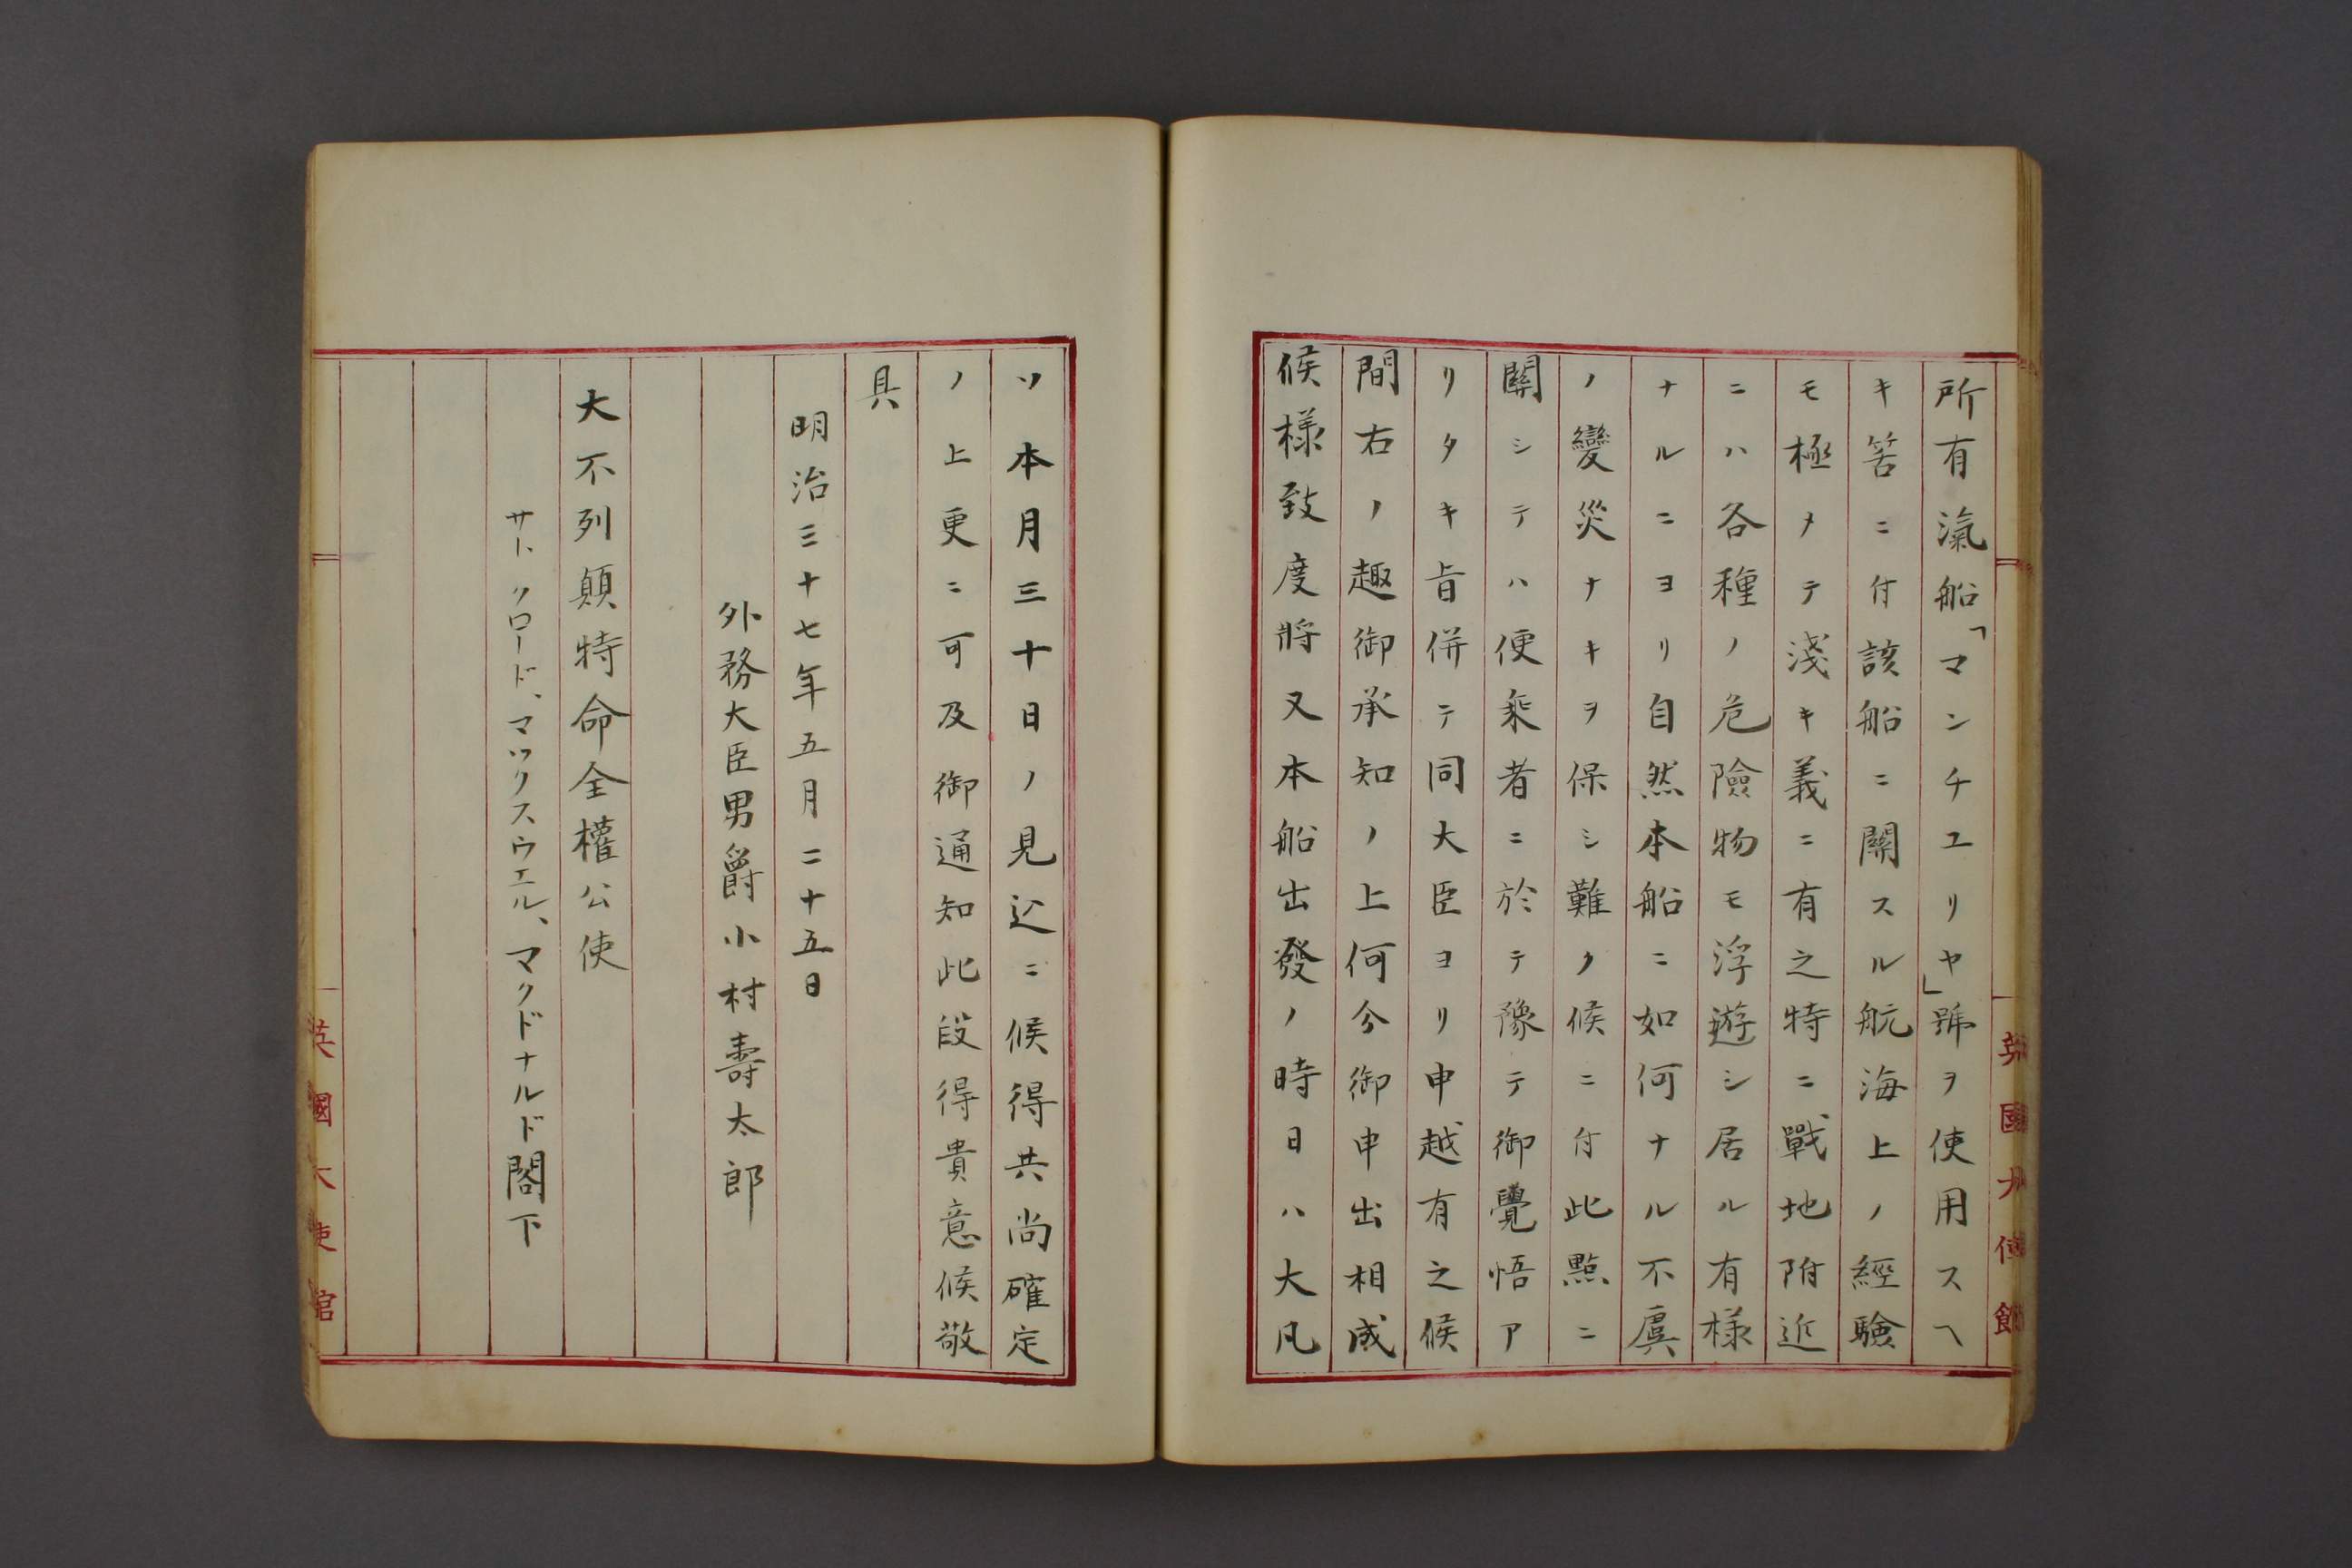 所有氣船「マンチユリヤ」號ヲ使用スヘ
キ筈ニ付該船ニ關スル航海上ノ經驗
モ極メテ淺キ義ニ有之特ニ戰地附近
ニハ各種ノ危險物モ浮遊シ居ル有樣
ナルニヨリ自然本船ニ如何ナル不虞
ノ變災ナキヲ保シ難ク候ニ付此點ニ
關シテハ便乘者ニ於テ豫テ御覺悟ア
リタキ旨併テ同大臣ヨリ申越有之候
間右ノ趣御承知ノ上何分御申出相成
候樣致度將又本船出發ノ時日ハ大凡
英國大使館
ソ本月三十日ノ見込ニ候得共尚確定
ノ上更ニ可及御通知此段得貴意候敬
具
明治三十七年五月二十五日
外務大臣男爵小村壽太郎
大不列顛特命全權公使
サー、クロード、マックスウエル、マクドナルド閣下
英國大使館